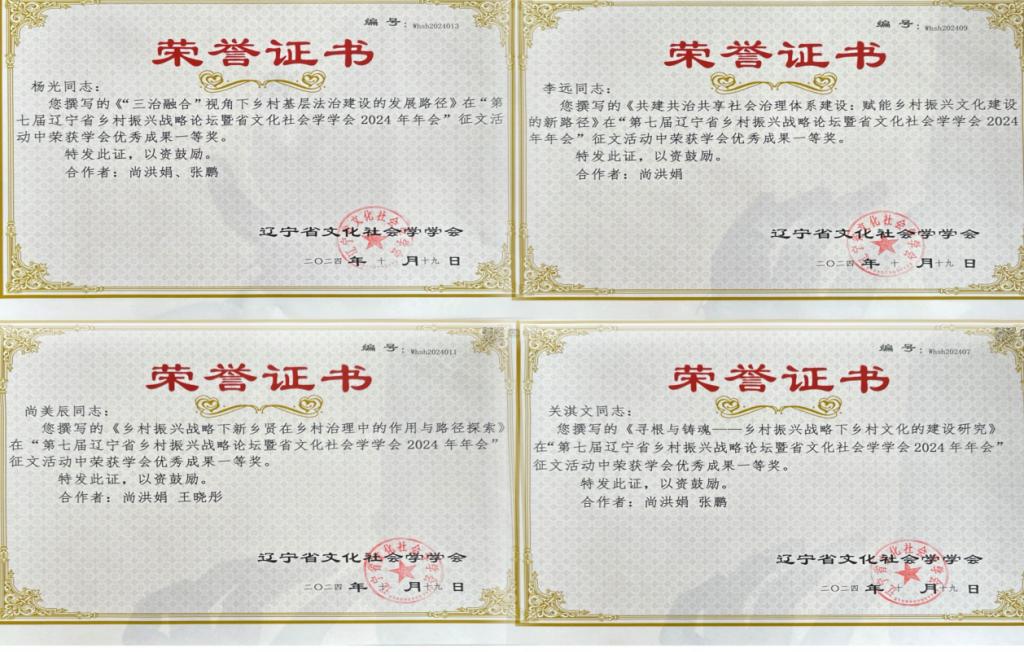 编 号：Whsh2024013
荣誉证书
杨光同志：
您撰写的《“三治融合”视角下乡村基层法治建设的发展路径》在“第
七届辽宁省乡村振兴战略论坛暨省文化社会学学会 2024 年年会”征文活
动中荣获学会优秀成果一等奖。
特发此证，以资鼓励。
合作者：尚洪娟、张鹏
辽宁省文化社会学学会
二〇二四 年 十 月十九 日
编 号：Whsh202409
荣誉证书
李远同志：
您撰写的《共建共治共享社会治理体系建设：赋能乡村振兴文化建设
的新路径》在“第七届辽宁省乡村振兴战略论坛暨省文化社会学学会 2024
年年会”征文活动中荣获学会优秀成果一等奖。
特发此证，以资鼓励。
合作者：尚洪娟
辽宁省文化社会学学会
二〇二四 年 十 月十九 日
编 号：Whsh2024011
荣誉证书
尚美辰同志：
您撰写的《乡村振兴战略下新乡贤在乡村治理中的作用与路径探索》
在“第七届辽宁省乡村振兴战略论坛暨省文化社会学学会 2024 年年会”
征文活动中荣获学会优秀成果一等奖。
特发此证，以资鼓励。
合作者：尚洪娟 王晓彤
辽宁省文化社会学学会
二〇二四 年 十 月十九 日
编 号：Whsh202407
荣誉证书
关淇文同志：
您撰写的《寻根与铸魂——乡村振兴战略下乡村文化的建设研究》
在“第七届辽宁省乡村振兴战略论坛暨省文化社会学学会 2024 年年会”
征文活动中荣获学会优秀成果一等奖。
特发此证，以资鼓励。
合作者：尚洪娟 张鹏
辽宁省文化社会学学会
二〇二四 年 十 月十九 日